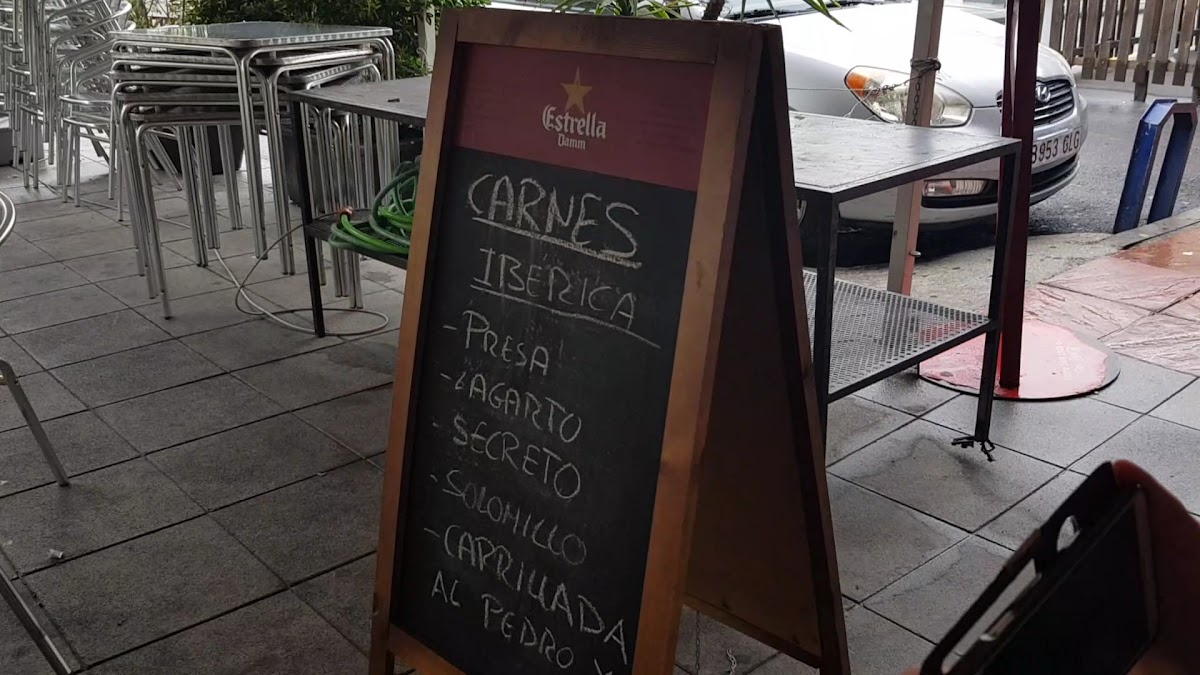 Estrella
Damm
CARNES
IBERICA
- PRESA
- LAGARTO
- SECRETO
- SOLOMILLO
- CARRILLADA
AL PEDRO X
8953 GLC